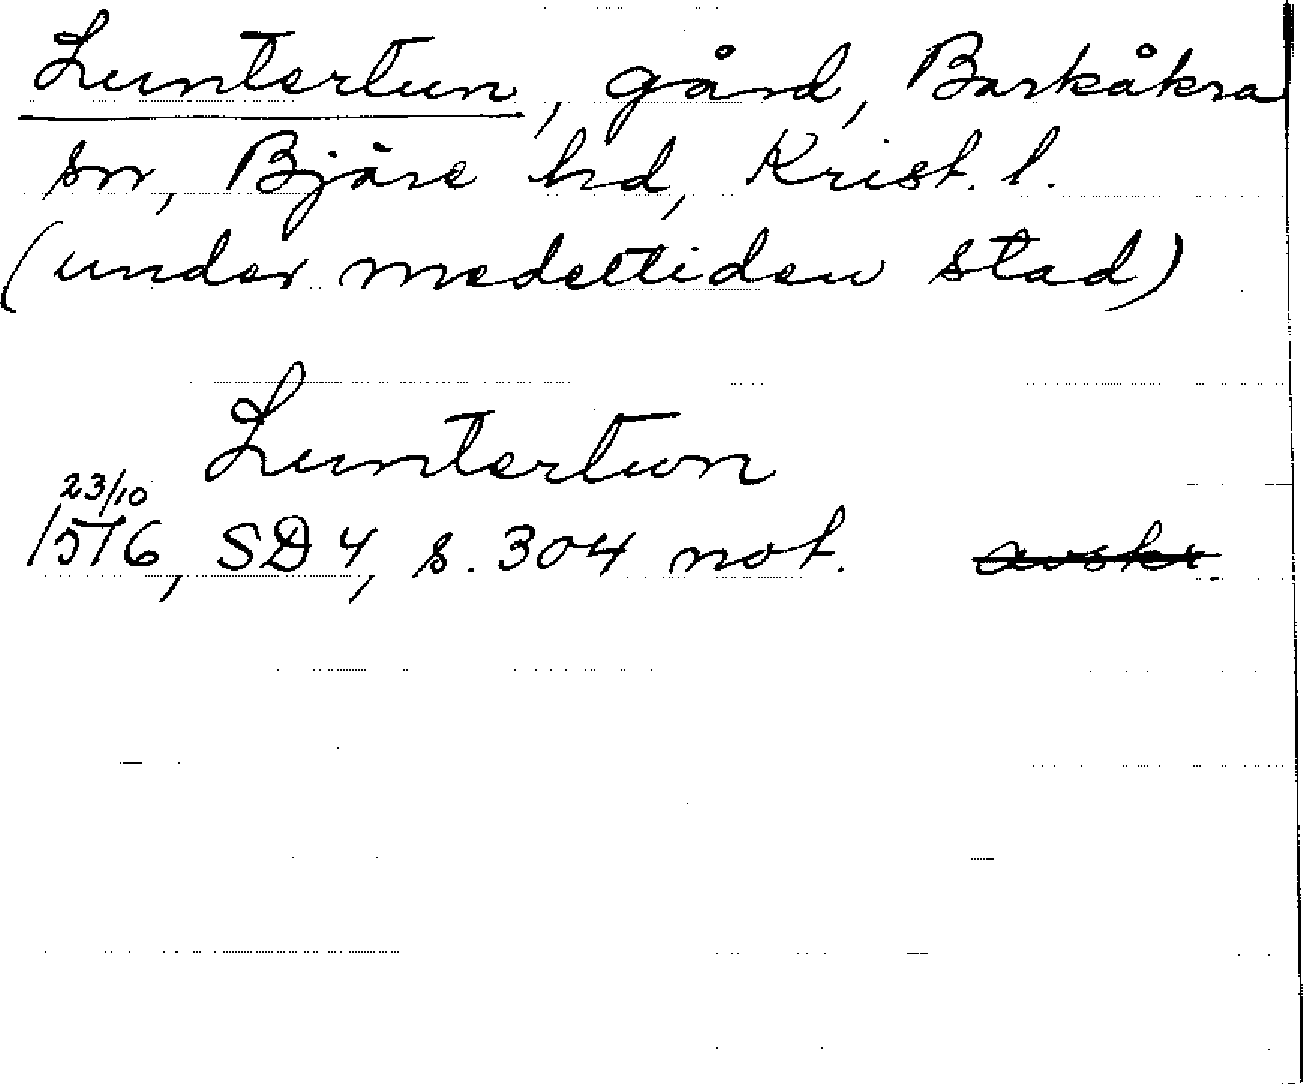 Luntertun, gård, Barkåkra
sn, Bjäre hd, Krist. l.
(under medeltiden stad)
Luntertun
23/10
1576, SD 4, s. 304 not. avskr